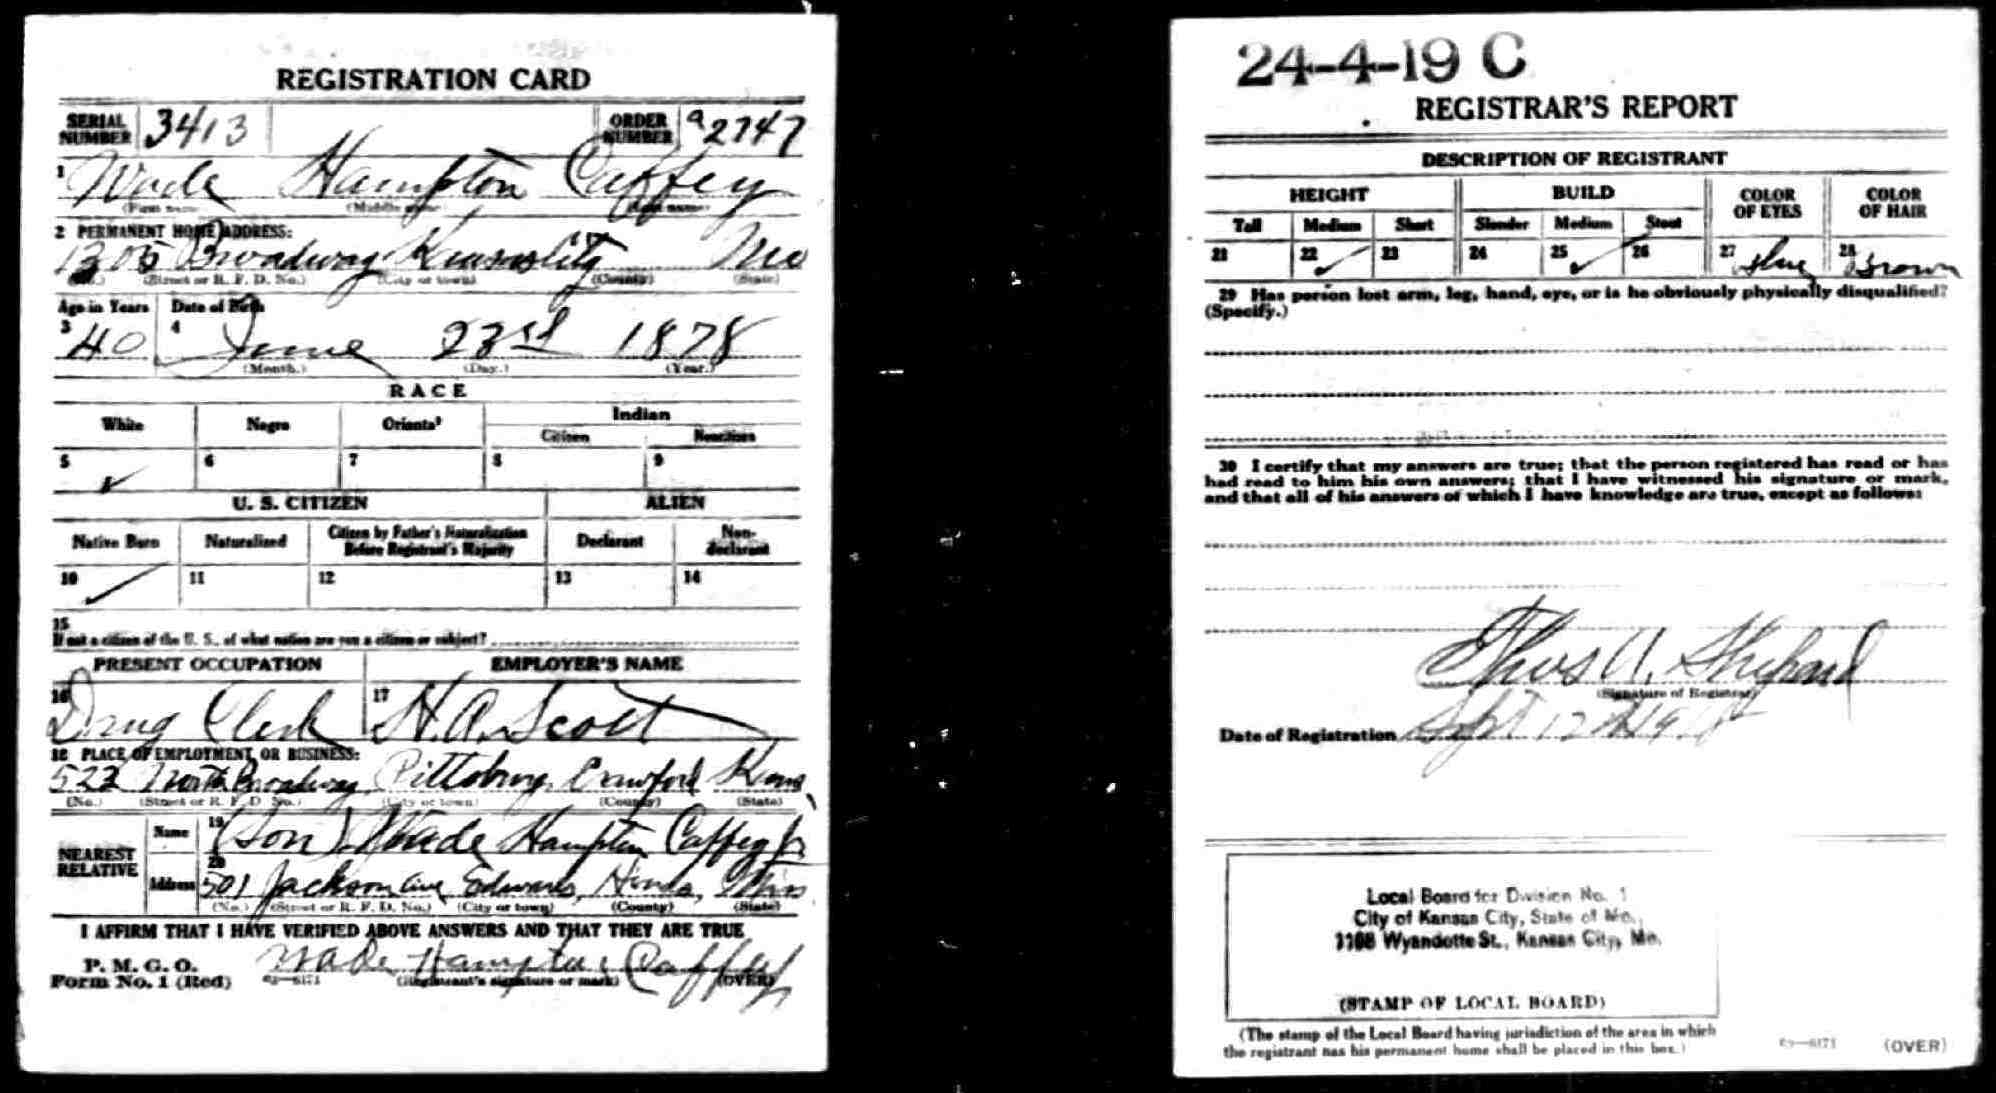 REGISTRATION CARD
SERIAL NUMBER 3413 ORDER NUMBER a2747
1 Wade Hampton Caffey
(First name) (Middle name) (Last name)
2 PERMANENT HOME ADDRESS:
1305 Broadway Kansas City Mo
(No.) (Street or R. F. D. No.) (City or town) (County) (State)
Age in Years Date of Birth
3 40 4 June 23rd 1878
(Month.) (Day.) (Year.)
RACE
White Negro Oriental Indian
Citizen Noncitizen
5 6 7 8 9
U. S. CITIZEN ALIEN
Native Born Naturalized Citizen by Father's Naturalization Before Registrant's Majority Declarant Non-declarant
10 11 12 13 14
15
If not a citizen of the U. S., of what nation are you a citizen or subject?
PRESENT OCCUPATION EMPLOYER'S NAME
16 Drug Clerk 17 H. A. Scott
18 PLACE OF EMPLOYMENT OR BUSINESS:
522 North Broadway Pittsburg Crawford Kans
(No.) (Street or R. F. D. No.) (City or town) (County) (State)
NEAREST RELATIVE Name 19 (Son) Wade Hampton Caffey Jr
Address 20 501 Jackson Ave Edwards, Hinds, Miss
(No.) (Street or R. F. D. No.) (City or town) (County) (State)
I AFFIRM THAT I HAVE VERIFIED ABOVE ANSWERS AND THAT THEY ARE TRUE
P. M. G. O.
Form No. 1 (Red) 03—6171 Wade Hampton Caffey
(Registrant's signature or mark) (OVER)
24-4-19 C
REGISTRAR'S REPORT
DESCRIPTION OF REGISTRANT
HEIGHT BUILD COLOR OF EYES COLOR OF HAIR
Tall Medium Short Slender Medium Stout
21 22 23 24 25 26 27 Blue 28 Brown
29 Has person lost arm, leg, hand, eye, or is he obviously physically disqualified?
(Specify.)
30 I certify that my answers are true; that the person registered has read or has
had read to him his own answers; that I have witnessed his signature or mark,
and that all of his answers of which I have knowledge are true, except as follows:
Thos A. Shepard
(Signature of Registrar)
Date of Registration Sept 12
Local Board for Division No. 1
City of Kansas City, State of Mo.,
1108 Wyandotte St., Kansas City, Mo.
(STAMP OF LOCAL BOARD)
(The stamp of the Local Board having jurisdiction of the area in which
the registrant has his permanent home shall be placed in this box.)
03—6171 (OVER)